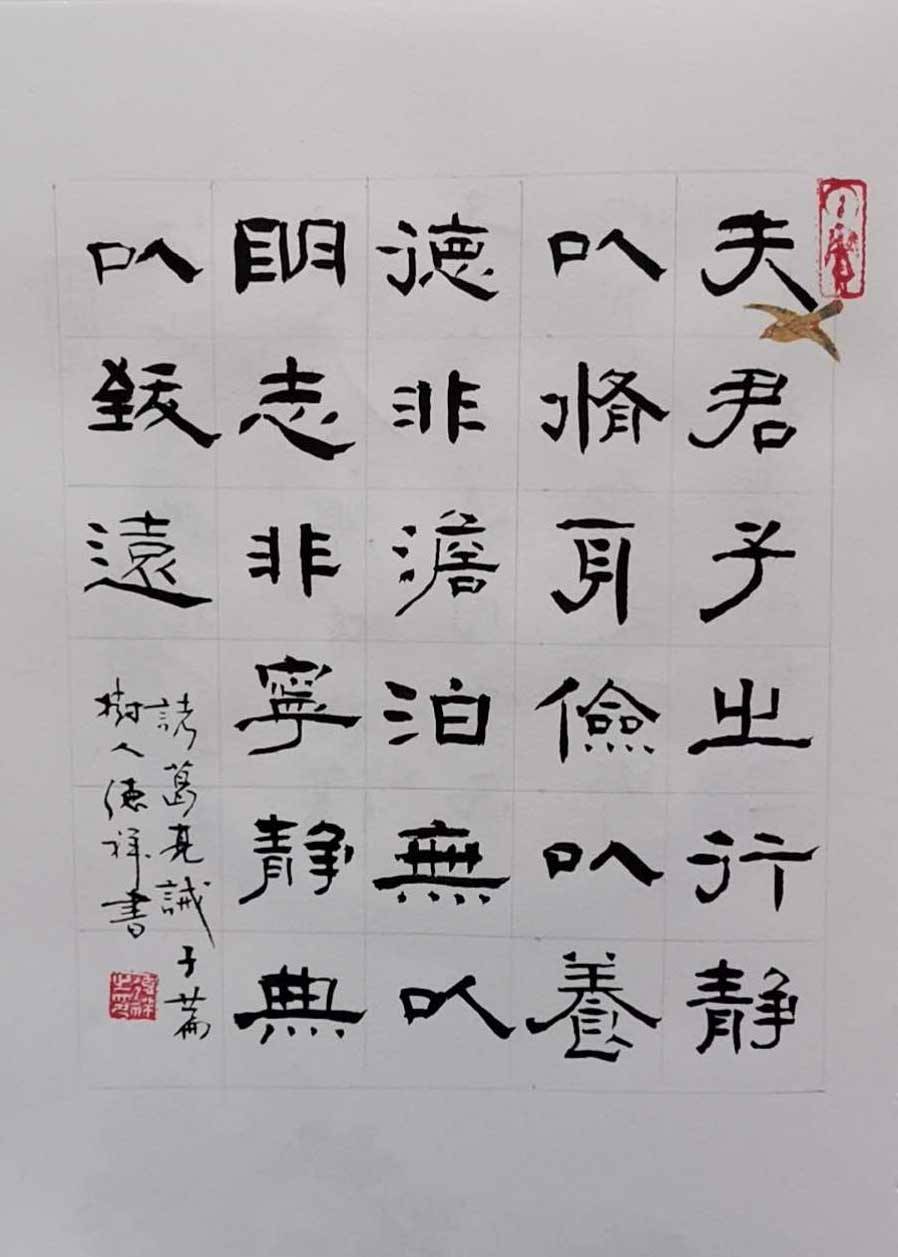 夫君子之行静
以脩身儉以養
德非澹泊無以
明志非寧静典
以致遠
諸葛亮誡子篇
樹人德祥書
德祥之印